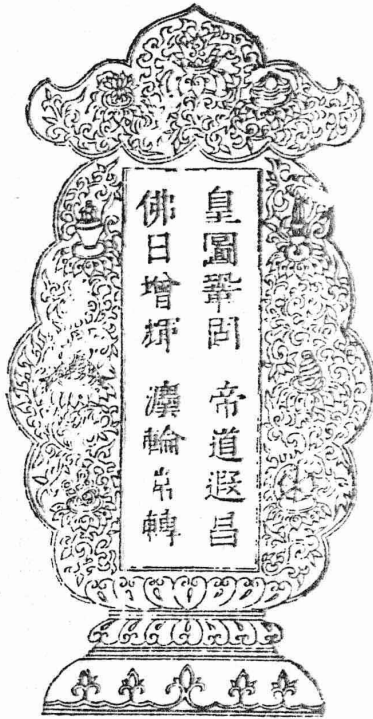 皇圖鞏固　帝道遐昌
佛日增輝　法輪常轉